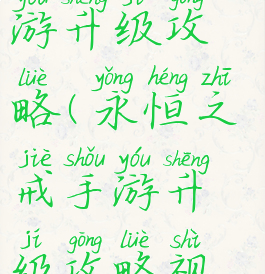 yóu shēng jí gōng
游升级攻
lüè yǒng héng zhī
略(永恒之
jiè shǒu yóu shēng
戒手游升
jí gōng lüè shì
级攻略视